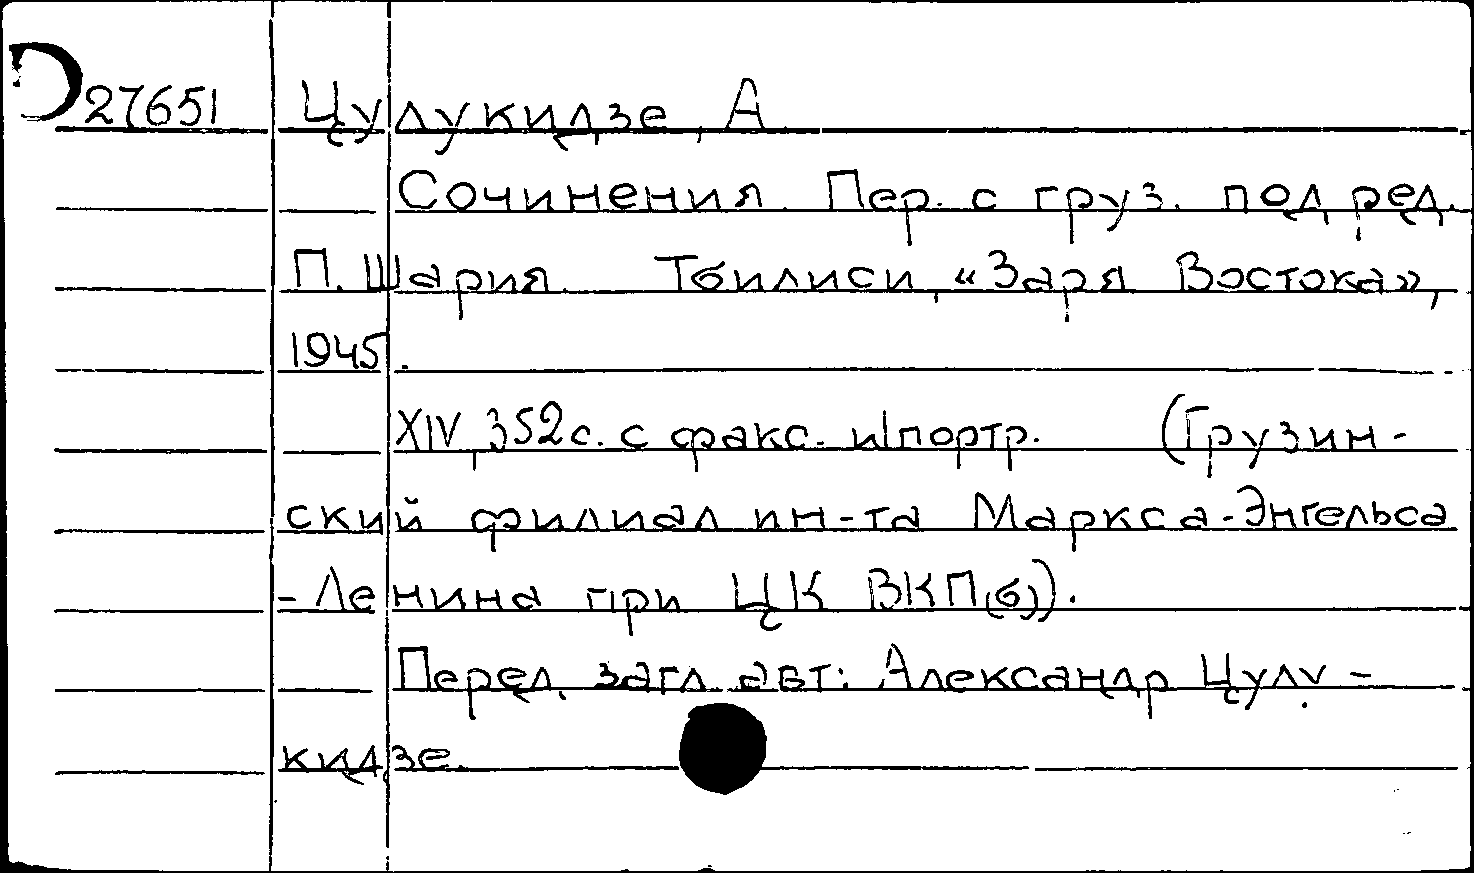 D 27651 Цулукидзе, А.
Сочинения. Пер. с груз. под ред.
П. Шария. Тбилиси, «Заря Востока»,
1945.
XIV, 352с. с факс. и портр. (Грузин-
ский филиал ин-та Маркса-Энгельса
-Ленина при ЦК ВКП(б)).
Перед загл. авт: Александр Цулу-
кидзе.